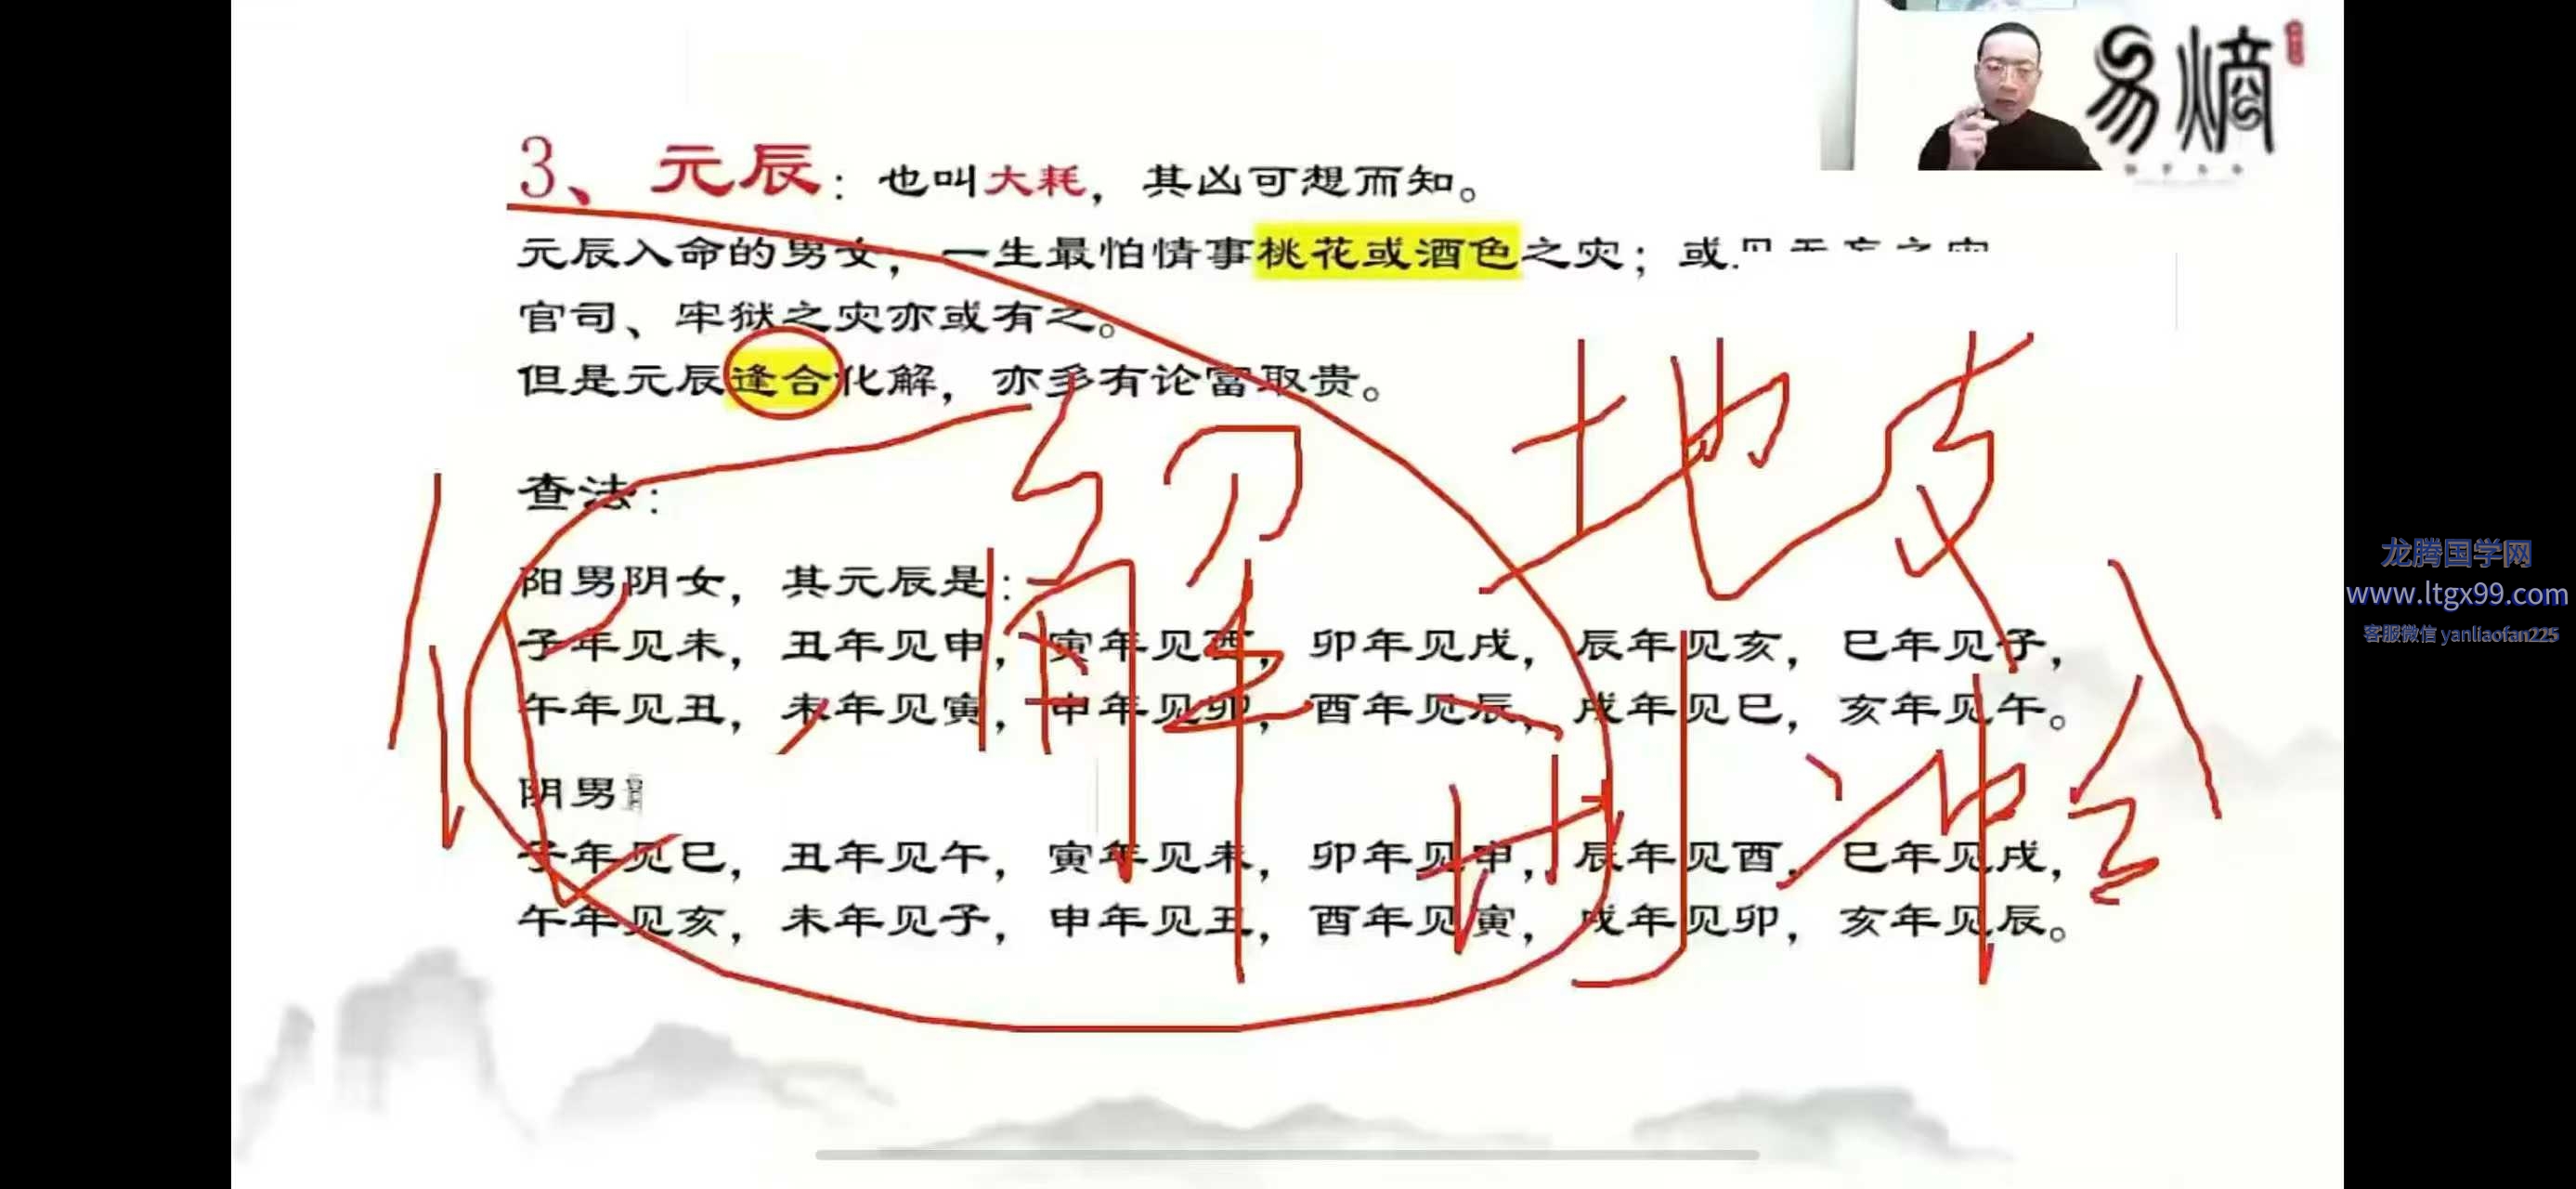 易熵
3、元辰：也叫大耗，其凶可想而知。
元辰入命的男女，一生最怕情事桃花或酒色之灾；或
官司、牢狱之灾亦或有之。
但是元辰逢合化解，亦多有论富取贵。
查法：
阳男阴女，其元辰是：
子年见未，丑年见申，寅年见酉，卯年见戌，辰年见亥，巳年见子，
午年见丑，未年见寅，申年见卯，酉年见辰，戌年见巳，亥年见午。
阴男
子年见巳，丑年见午，寅年见未，卯年见申，辰年见酉，巳年见戌，
午年见亥，未年见子，申年见丑，酉年见寅，戌年见卯，亥年见辰。
化解
地支
冲合
龙腾国学网
www.ltgx99.com
客服微信 yanliaofan225